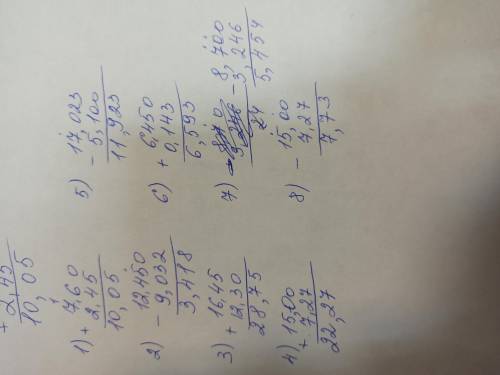 + 2,45
10,05
1) + 7,60
2,45
10,05
2) - 12,450
9,032
3,418
3) + 16,45
12,30
28,75
4) + 15,00
7,27
22,27
5) - 17,023
5,100
11,923
6) + 6,450
0,143
6,593
7) 8,700
- 3,246
5,454
8) - 15,00
7,27
7,73